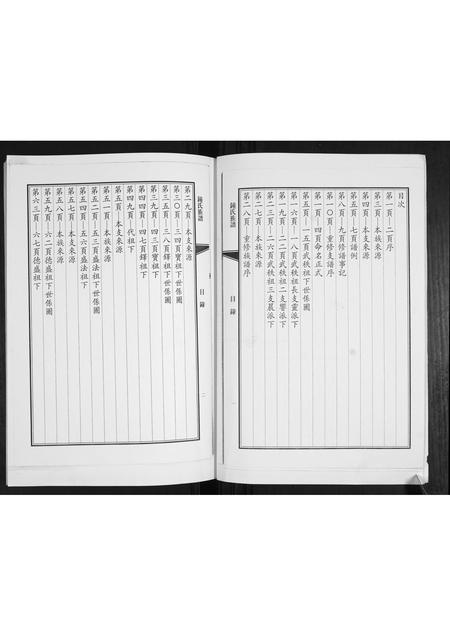 目次
第一頁—二頁序
第三頁—本族來源
第四頁—本支來源
第五頁—七頁譜例
第八頁—九頁修譜事記
第一〇頁—重修支譜序
第一一頁—四頁命名正式
第一五頁—一五頁武秩祖下世係圖
第一六頁—一八頁武秩祖長支靈派下
第一九頁—二一頁武秩祖二支響派下
第二二頁—二六頁武秩祖三支晨派下
第二七頁—本族來源
第二八頁—重修族譜序
鍾氏族譜
目錄
一
鍾氏族譜
目錄
二
第二九頁—本支來源
第三〇頁—三四頁寶祖下世係圖
第三五頁—三八頁鐸祖下世係圖
第三九頁—四三頁寶祖下
第四四頁—四七頁鐸祖下
第四九頁—代祖下
第五頁—本支來源
第五一頁—本族來源
第五二頁—五三頁盛法祖下世係圖
第五四頁—五六頁盛法祖下
第五七頁—本支來源
第五八頁—本族來源
第五九頁—六二頁德盛祖下世係圖
第六三頁—六七頁德盛祖下